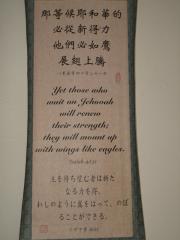 那等候耶和華的
必從新得力
他們必如鷹
展翅上騰
Yet those who
wait on Jehovah
will renew
their strength;
they will mount up
with wings like eagles.
Isaiah 40:31
主を待ち望む者は新た
なる力を得、
わしのように翼をはって、のぼ
ることができる。
イザヤ書 40:31